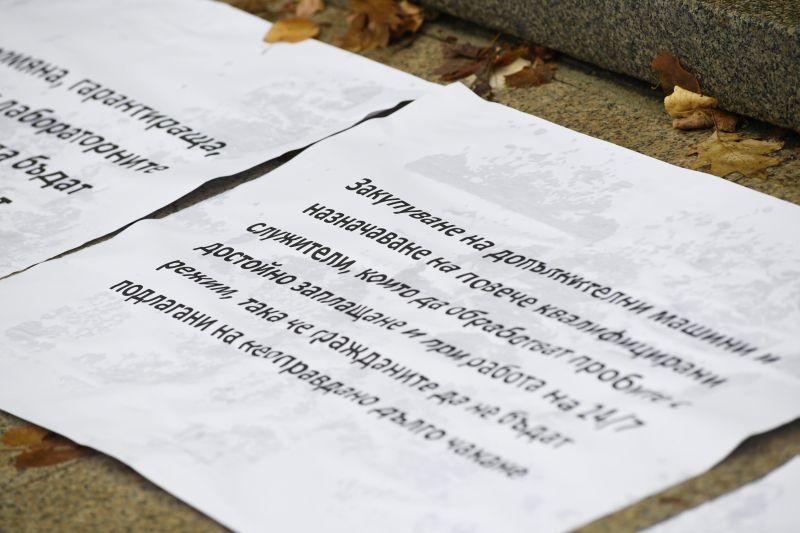 омяна, гарантираща,
лабораторните
да бъдат
Закупуване на допълнителни машини и
назначаване на повече квалифицирани
служители, които да обработват пробите с
достойно заплащане и при работа на 24/7
режим, така че гражданите да не бъдат
подлагани на неоправдано дълго чакане